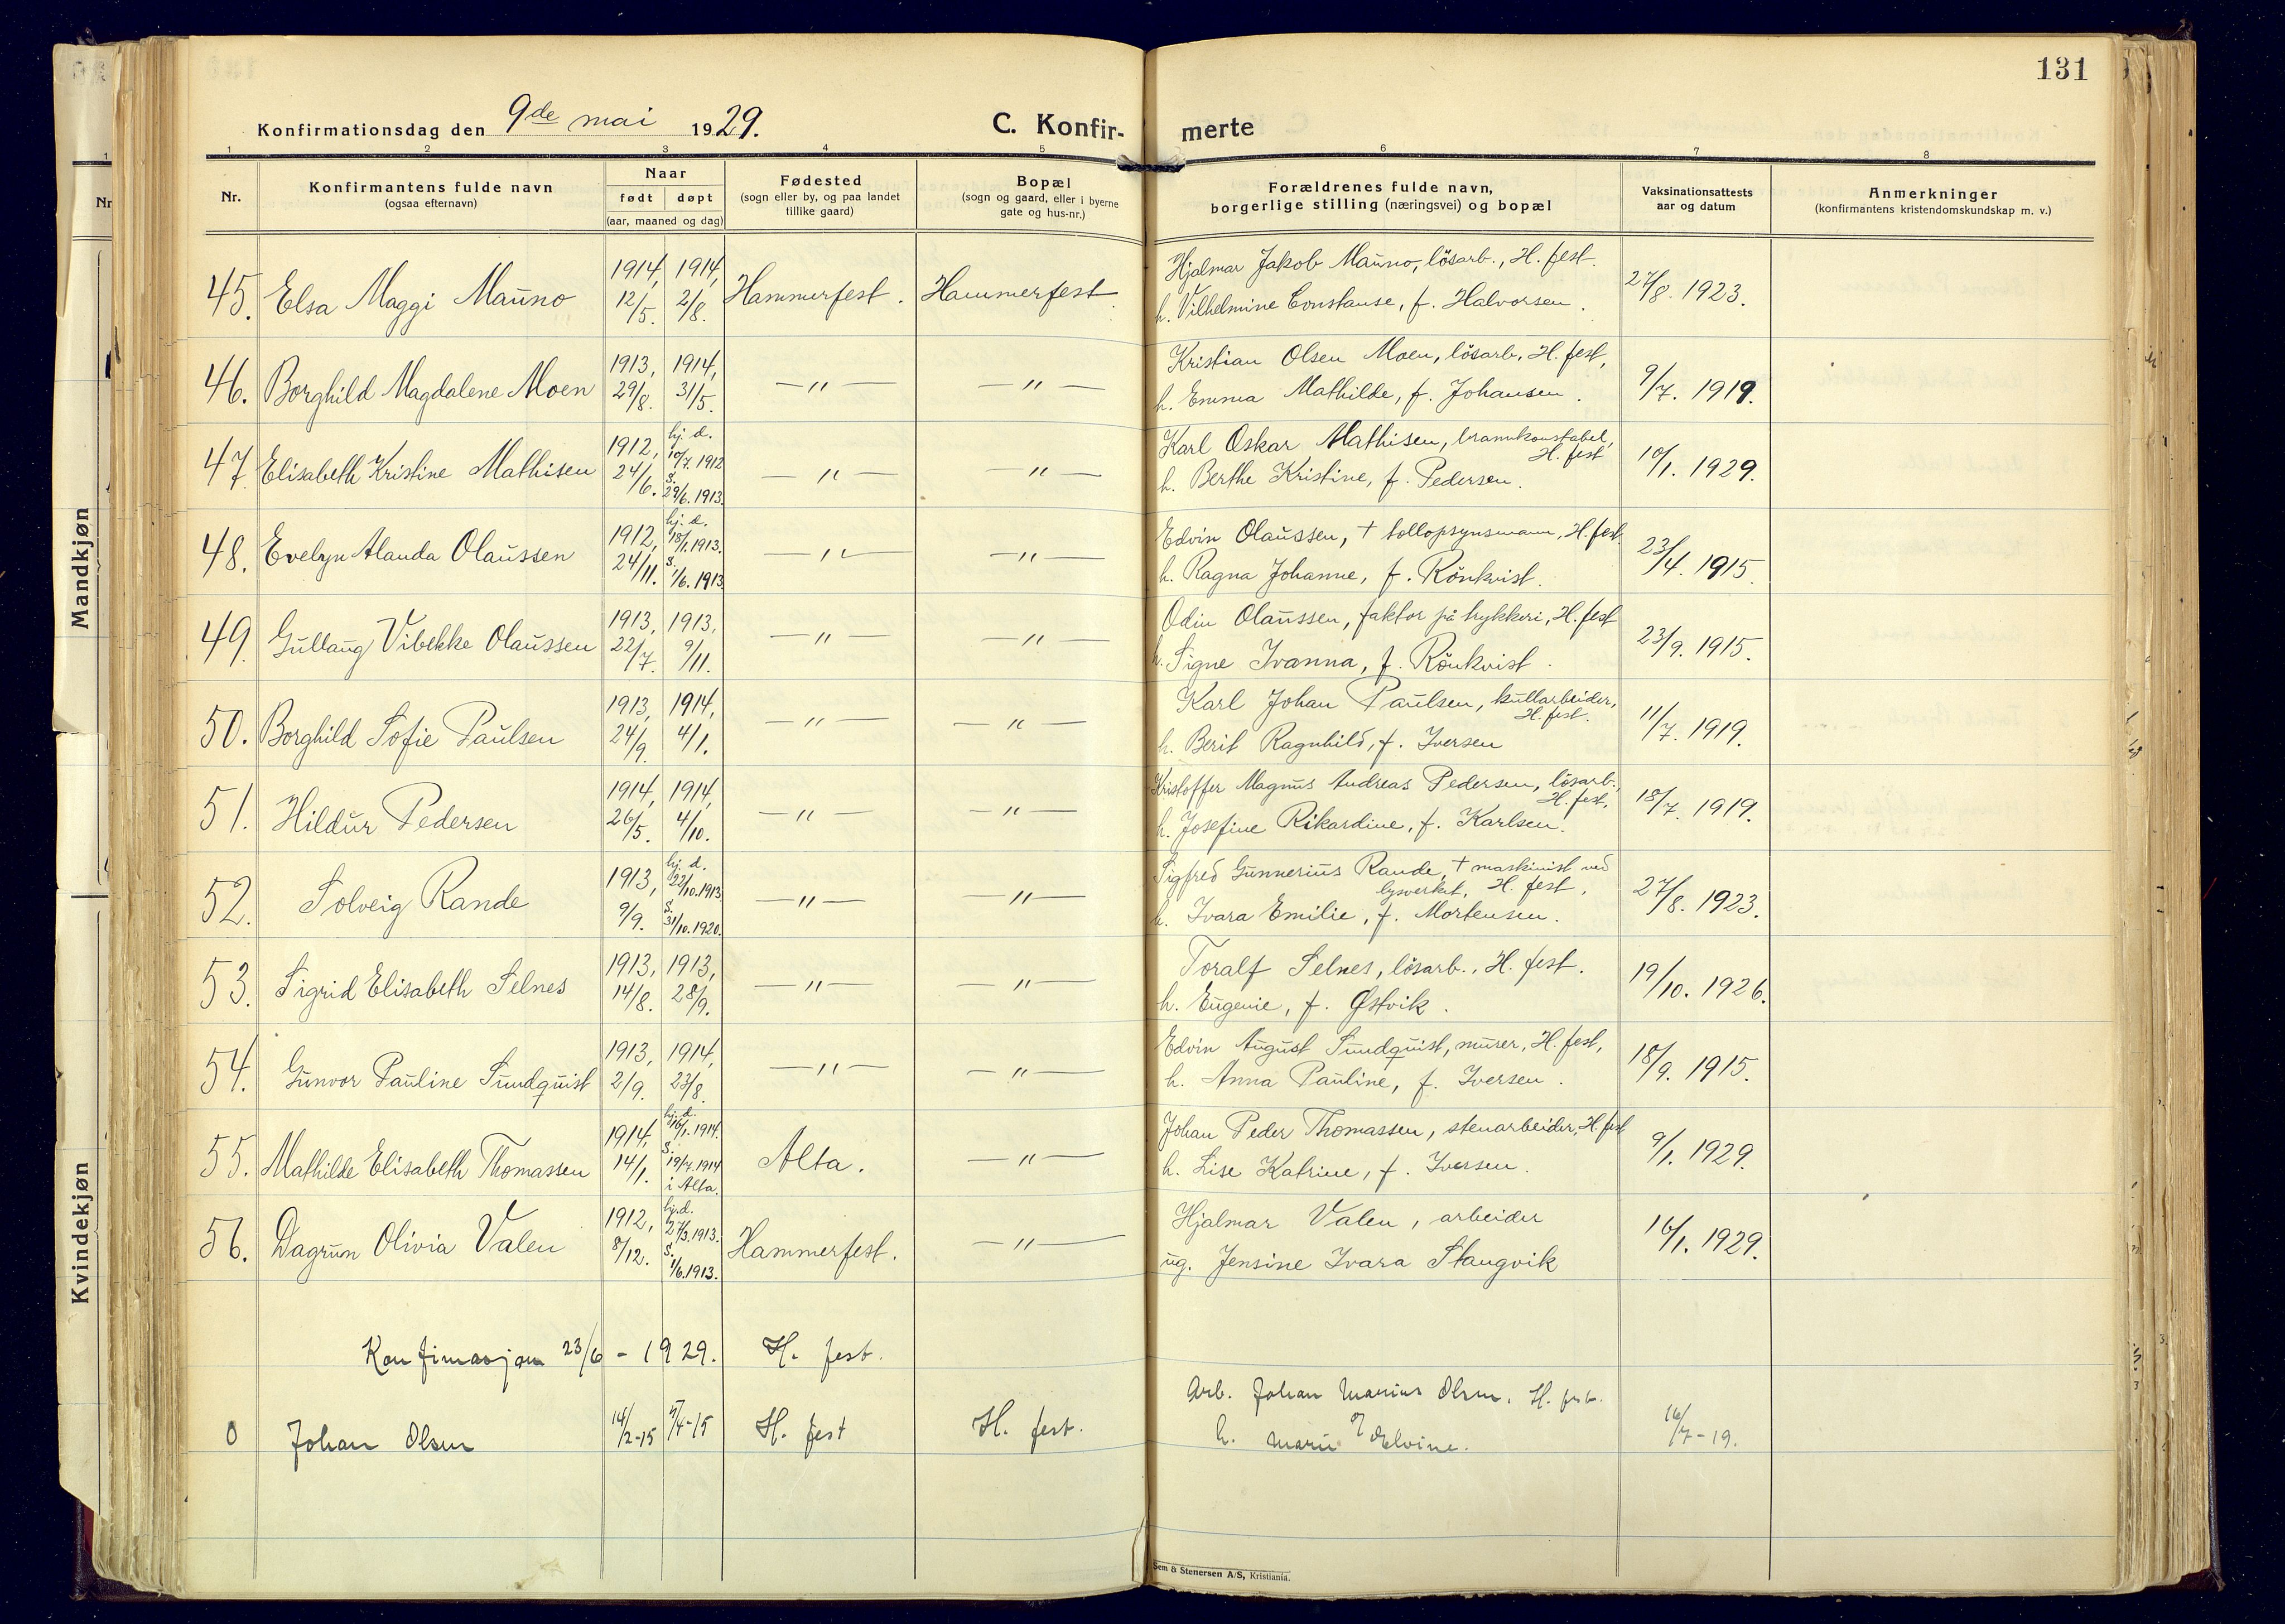 131
Konfirmationsdag den 9de mai 1929.
C. Konfir-
merte
1 2 3 4 5 6 7 8
Nr.
Konfirmantens fulde navn
(ogsaa efternavn)
Naar
født døpt
(aar, maaned og dag)
Fødested
(sogn eller by, og paa landet
tillike gaard)
Bopæl
(sogn og gaard, eller i byerne
gate og hus-nr.)
Forældrenes fulde navn,
borgerlige stilling (næringsvei) og bopæl
Vaksinationsattests
aar og datum
Anmerkninger
(konfirmantens kristendomskundskap m. v.)
Mandkjøn
Kvindekjøn
Nr
1
45. Elsa Maggi Mauno
1914, 12/5.
1914, 2/8.
Hammerfest.
Hammerfest
Hjalmar Jakob Mauno, lösarb., H. fest.
h. Vilhelmine Constanse, f. Halvorsen.
27/8. 1923.
46. Borghild Magdalene Moen
1913, 29/8.
1914, 31/5.
—"—
—"—
Kristian Olsen Moen, lösarb, H. fest,
h. Emma Mathilde, f. Johansen.
9/7. 1919.
47. Elisabeth Kristine Mathisen
1912, 24/6.
hj. d.
10/7. 1912
S.
29/6. 1913.
—"—
—"—
Karl Oskar Mathisen, brannkonstabel,
H. fest
h. Berthe Kristine, f. Pedersen.
10/1. 1929.
48. Evelyn Alanda Olaussen
1912, 24/11.
hj. d.
18/1. 1913.
S.
1/6. 1913
—"—
—"—
Edvin Olaussen, + tollopsynsmann, H. fest.
h. Ragna Johanne, f. Rönkvist.
23/4. 1915.
49. Gullaug Vibekke Olaussen
1913, 22/7.
1913, 9/11.
—"—
—"—
Odin Olaussen, faktor på trykkeri, H. fest
h. Signe Ivanna, f. Rönkvist.
23/9. 1915.
50. Borghild Sofie Paulsen
1913, 24/9.
1914, 4/1.
—"—
—"—
Karl Johan Paulsen, kullarbeider,
H. fest.
h. Berit Ragnhild, f. Iversen
11/7. 1919.
51. Hildur Pedersen
1914, 26/5.
1914, 4/10.
—"—
—"—
Kristoffer Magnus Andreas Pedersen, lösarb.,
H. fest,
h. Josefine Rikardine, f. Karlsen.
18/7. 1919.
52. Solveig Rande
1913, 9/9.
hj. d.
22/10. 1913
S.
31/10. 1920.
—"—
—"—
Sigfred Gunnerius Rande, + maskinist ved
lysverket, H. fest.
h. Ivara Emilie, f. Mortensen.
27/8. 1923.
53. Sigrid Elisabeth Selnes
1913, 14/8.
1913, 28/9.
—"—
—"—
Toralf Selnes, lösarb., H. fest.
h. Eugenie, f. Østvik.
19/10. 1926.
54. Gunvor Pauline Sundquist
1913, 2/9.
1914, 23/8.
—"—
—"—
Edvin August Sundquist, murer, H. fest,
h. Anna Pauline, f. Iversen.
18/9. 1915.
55. Mathilde Elisabeth Thomassen
1914, 14/1.
hj. d.
16/1. 1914.
S.
19/7. 1914
i Alta.
Alta.
—"—
Johan Peder Thomassen, stenarbeider, H. fest
h. Lise Katrine, f. Iversen.
9/1. 1929.
56. Dagrun Olivia Valen
1912, 8/12.
hj. d.
27/3. 1913.
S.
1/6. 1913.
Hammerfest.
—"—
Hjalmar Valen, arbeider
ug. Jensine Ivara Stangvik
16/1. 1929.
Konfirmasjon 23/6 - 1929. H. fest.
0 Johan Olsen
14/2-15
5/4-15
H. fest
H. fest.
Arb. Johan Marius Olsen, H. fest.
h. Marie Elvine.
16/7-19.
Sem & Stenersen A/S, Kristiania.